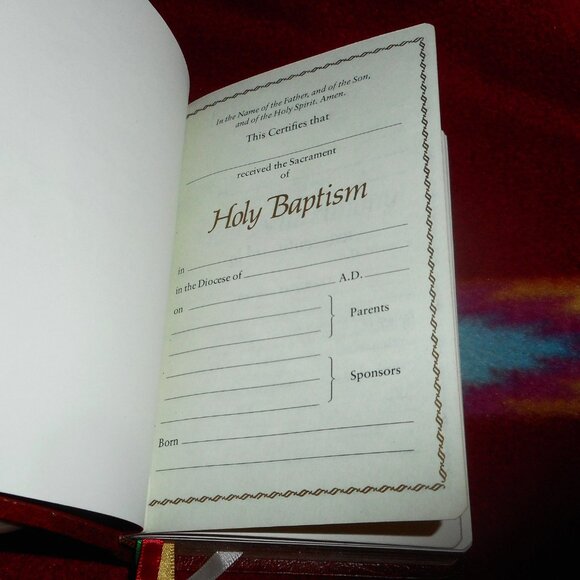 In the Name of the Father, and of the Son,
and of the Holy Spirit. Amen.
This Certifies that
received the Sacrament
of
Holy Baptism
in
in the Diocese of
on A.D.
Parents
Sponsors
Born